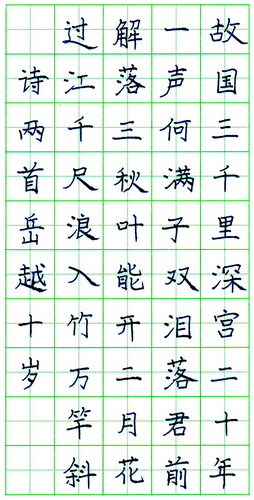 故国三千里深宫二十年
一声何满子双泪落君前
解落三秋叶能开二月花
过江千尺浪入竹万竿斜
诗两首岳越十岁